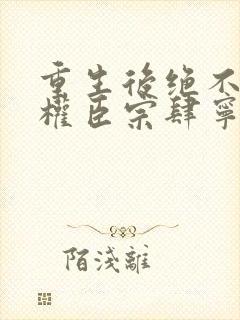 重生後绝不
權臣宗肆寧
陌淺離